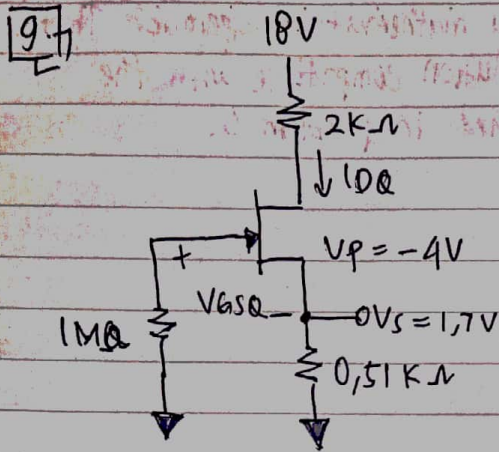 9
18V
2KΩ
↓ IDQ
+
VP = -4V
VGSQ -
OVS = 1,7V
1MΩ
0,51KΩ